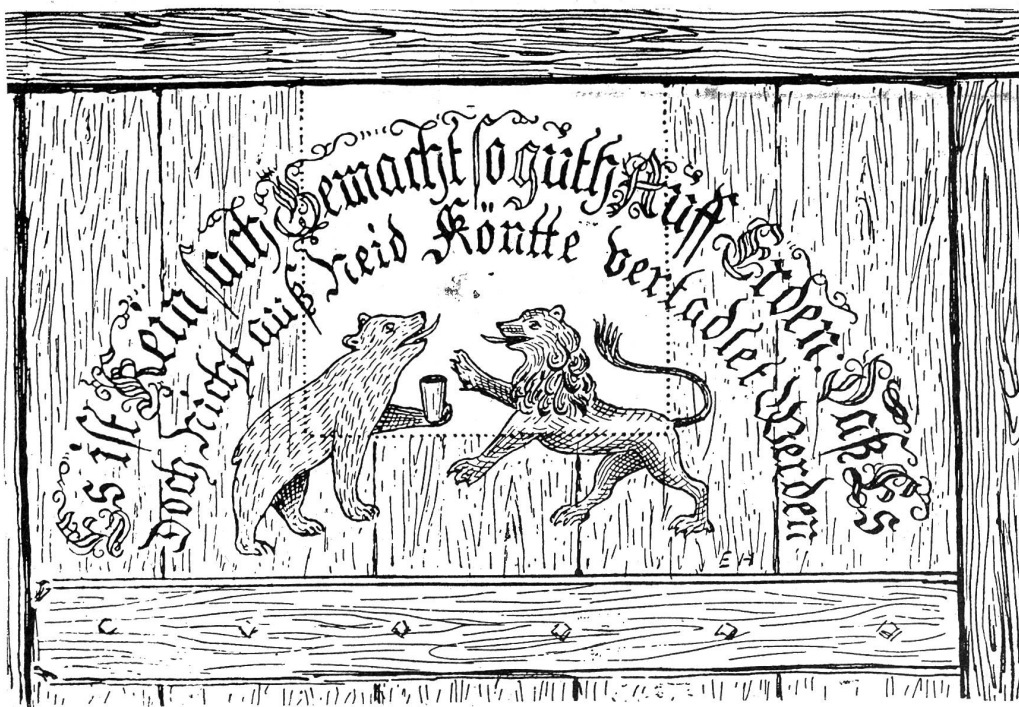 Es ist Kein sach Gemacht so güth Aüff Erden. Daß Es
Doch Nicht auß Neid Köntte vertadlet Werden
E H